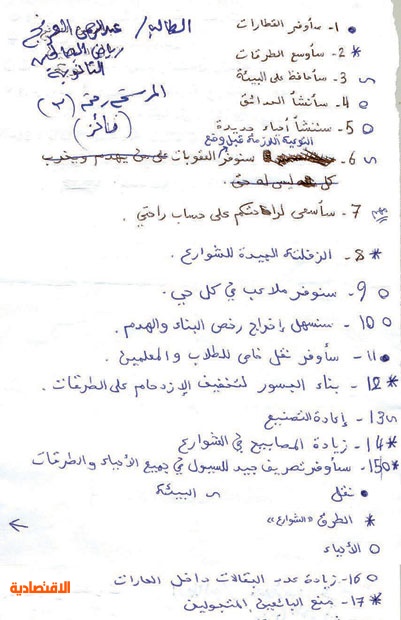 الطالب/ عبدالرحمن
رياض الصالحين
الثانوية
المرشح رقم (٣)
(فائز)
● 1- سأوفر القطارات
* 2- سأوسع الطرقات
~ 3- سأحافظ على البيئة
● 4- سأنشأ الحدائق
○ 5- سننشأ أحياء جديدة
التوعية اللازمة قبل وضع
~ 6- سنوفر العقوبات على من يهدم ويخرب
كل ليس له حق.
مهم 7- سأسعى لراحتكم على حساب راحتي.
* 8- الزفلتة الجيدة للشوارع.
○ 9- سنوفر ملاعب في كل حي.
○ 10- سنسهل إخراج رخص البناء والهدم.
● 11- سأوفر نقل خاص للطلاب والمعلمين.
* 12- بناء الجسور لتخفيف الإزدحام على الطرقات.
~ 13- إعادة التصنيع
* 14- زيادة المصابيح في الشوارع
○* 15- سأوفر تصريف جيد للسيول في جميع الأحياء والطرقات
● نقل ~ البيئة
* الطرق «الشوارع»
○ الأحياء
←
○ 16- زيادة عدد البقالات داخل الحارات
* 17- منع البائعين المتجولين
الاقتصادية